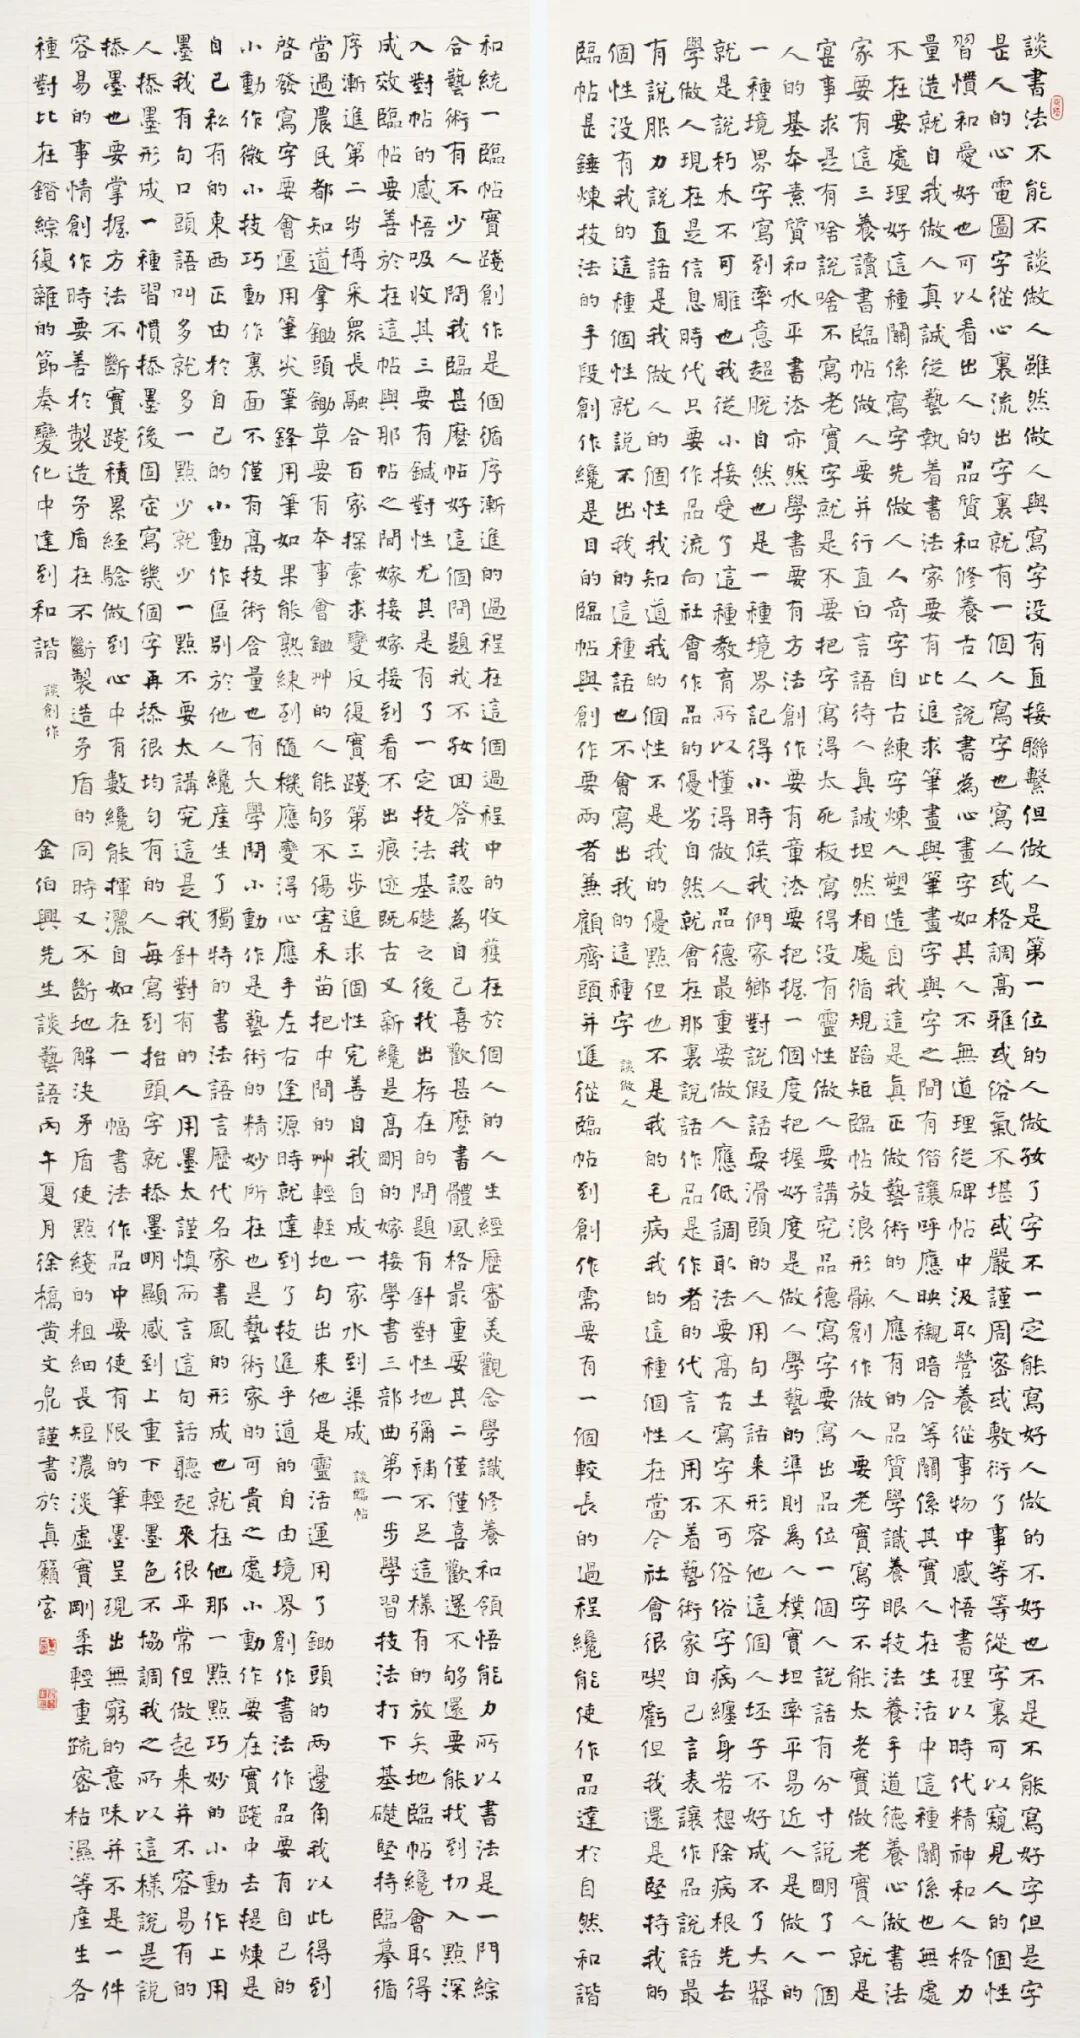 談書法不能不談做人雖然做人與寫字没有直接聯繫但做人是第一位的人做好了字不一定能寫好人做的不好也不是不能寫好字但是字
是人的心電圖字從心裏流出字裏就有一個人寫字也寫人或格調高雅或俗氣不堪或嚴謹周密或敷衍了事等等從字裏可以窺見人的個性
習慣和愛好也可以看出人的品質和修養古人說書為心畫字如其人不無道理從碑帖中汲取營養從事物中感悟書理以時代精神和人格力
量造就自我做人真誠從藝執着書法家要有此追求筆畫與筆畫字與字之間有偕讓呼應映襯暗合等關係其實人在生活中這種關係也無處
不在要處理好這種關係寫字先做人人奇字自古練字煉人塑造自我這是真正做藝術的人應有的品質學識養眼技法養手道德養心做書法
家要有這三養讀書臨帖做人要并行直白言語待人真誠坦然相處循規蹈矩臨帖放浪形骸創作做人要老實寫字不能太老實做老實人就是
寔事求是有啥說啥不寫老實字就是不要把字寫得太死板寫得没有靈性做人要講究品德寫字要寫出品位一個人說話有分寸說明了一個
人的基本素質和水平書法亦然學書要有方法創作要有章法要把握一個度把握好度是做人學藝的準則爲人樸實坦率平易近人是做人的
一種境界字寫到率意超脱自然也是一種境界記得小時候我們家鄉對說假話耍滑頭的人用句土話来形容他這個人坯子不好成不了大器
就是說朽木不可雕也我從小接受了這種教育所以懂得做人品德最重要做人應低調取法要高古寫字不可俗俗字病纏身若想除病根先去
學做人現在是信息時代只要作品流向社會作品的優劣自然就會在那裏說話作品是作者的代言人用不着藝術家自己言表讓作品說話最
有說服力說直話是我做人的個性我知道我的個性不是我的優點但也不是我的毛病我的這種個性在當今社會很喫虧但我還是堅持我的
個性没有我的這種個性就說不出我的這種話也不會寫出我的這種字 談做人
臨帖是錘煉技法的手段創作纔是目的臨帖與創作要兩者兼顧齊頭并進從臨帖到創作需要有一個較長的過程纔能使作品達於自然和諧
和統一臨帖實踐創作是個循序漸進的過程在這個過程中的收獲在於個人的人生經歷審美觀念學識修養和領悟能力所以書法是一門綜
合藝術有不少人問我臨甚麼帖好這個問題我不好回答我認為自己喜歡甚麼書體風格最重要其二僅僅喜歡還不够還要能找到切入點深
入對帖的感悟吸收其三要有鍼對性尤其是有了一定技法基礎之後找出存在的問題有針對性地彌補不足這樣有的放矢地臨帖纔會取得
成效臨帖要善於在這帖與那帖之間嫁接嫁接到看不出痕迹既古又新纔是高明的嫁接學書三部曲第一步學習技法打下基礎堅持臨摹循
序漸進第二步博采衆長融合百家探索求變反復實踐第三步追求個性完善自我自成一家水到渠成 談臨帖
當過農民都知道拿鋤頭鋤草要有本事會鋤艸的人能够不傷害禾苗把中間的艸輕輕地勾出来他是靈活運用了鋤頭的两邊角我以此得到
啓發寫字要會運用筆尖筆鋒用筆如果能熟練到隨機應變得心應手左右逢源時就達到了技進乎道的自由境界創作書法作品要有自己的
小動作微小技巧動作裏面不僅有高技術含量也有大學問小動作是藝術的精妙所在也是藝術家的可貴之處小動作要在實踐中去提煉是
自己私有的東西正由於自己的小動作區别於他人纔產生了獨特的書法語言歷代名家書風的形成也就在他那一點點巧妙的小動作上用
墨我有句口頭語叫多就多一點少就少一點不要太講究這是我針對有的人用墨太謹慎而言這句話聽起來很平常但做起来并不容易有的
人搽墨形成一種習慣搽墨後固定寫幾個字再搽很均匀有的人每寫到抬頭字就搽墨明顯感到上重下輕墨色不協調我之所以這樣說是說
搽墨也要掌握方法不斷實踐積累經驗做到心中有數纔能揮灑自如在一幅書法作品中要使有限的筆墨呈現出無窮的意味并不是一件
容易的事情創作時要善於製造矛盾在不斷製造矛盾的同時又不斷地解决矛盾使點綫的粗細長短濃淡虛實剛柔輕重疏密枯濕等產生各
種對比在錯綜復雜的節奏變化中達到和諧 談創作 金伯興先生談藝語丙午夏月徐橋黄文泉謹書於真籟室